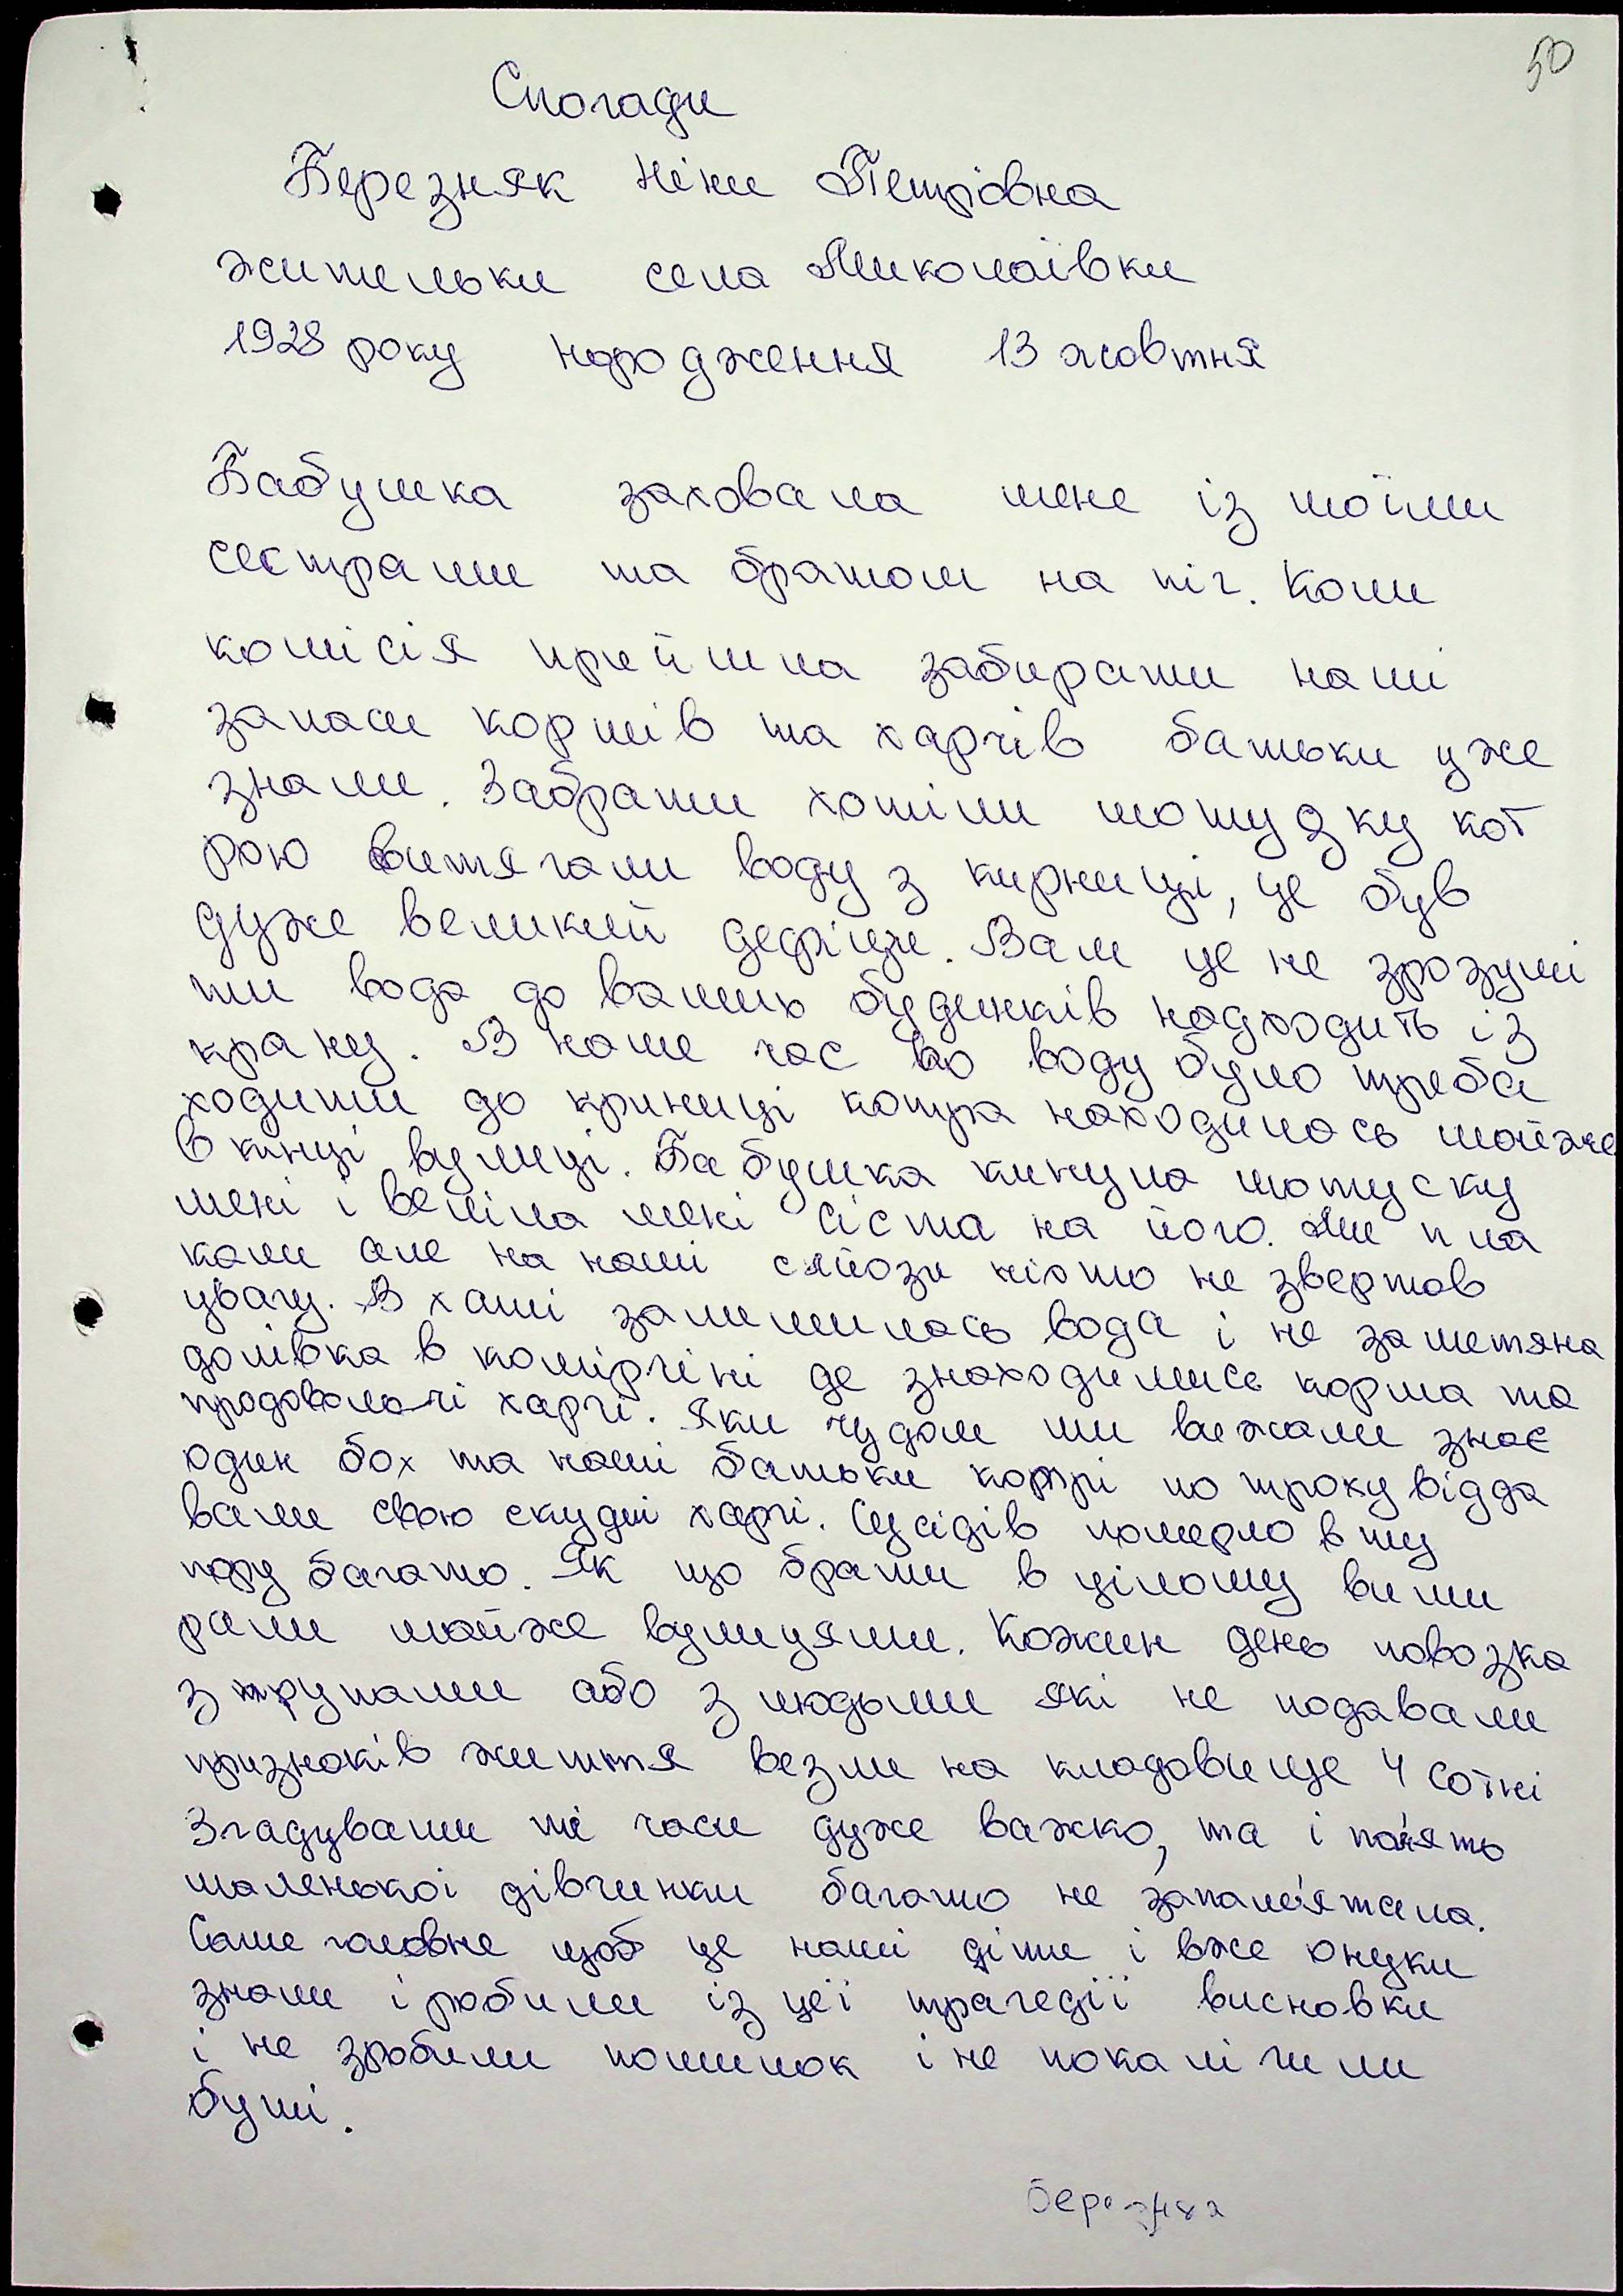 50
Спогади
Березняк Ніни Петрівна
жительки села Миколаївки
1928 року народження 13 жовтня
Бабушка заховала мене із моїми
сестрами та братом на піч. Коли
комісія прийшла забирати наші
запаси кормів та харчів батьки уже
знали. Забрати хотіли мотузку кот
рою витягали воду з кирниці, це був
дуже великий дефіци. Вам це не зрозумі
ти вода до ваших будинків надходить із
крану. В наше час по воду було треба
ходити до криниці котра находилась майже
в кінці вулиці. Бабушка кинула мотуску
мені і веліла мені сіста на його. Ми пла
кали але на наші сльози ніхто не звертав
увагу. В хаті залишилась вода і не заметяна
долівка в комірчіні де знаходились корма та
продовольчі харчі. Яки чудом ми вижали знає
один бох та наші батьки котрі по троху відда
вали свою скудні харчі. Сусідів померло в ту
пору багато. Як що брати в цілому вими
рали майже вулицями. Кожин день повозка
з трупами або з людьми які не подавали
признаків життя везли на кладовище 4 сотні
Згадувати ті часи дуже важко, та і пам'ять
маленької дівчинки багато не запам'ятала.
Саме головне щоб це наші діти і вже онуки
знали і робили із цеї трагедії висновки
і не зробили помилок і не покалічили
буті.